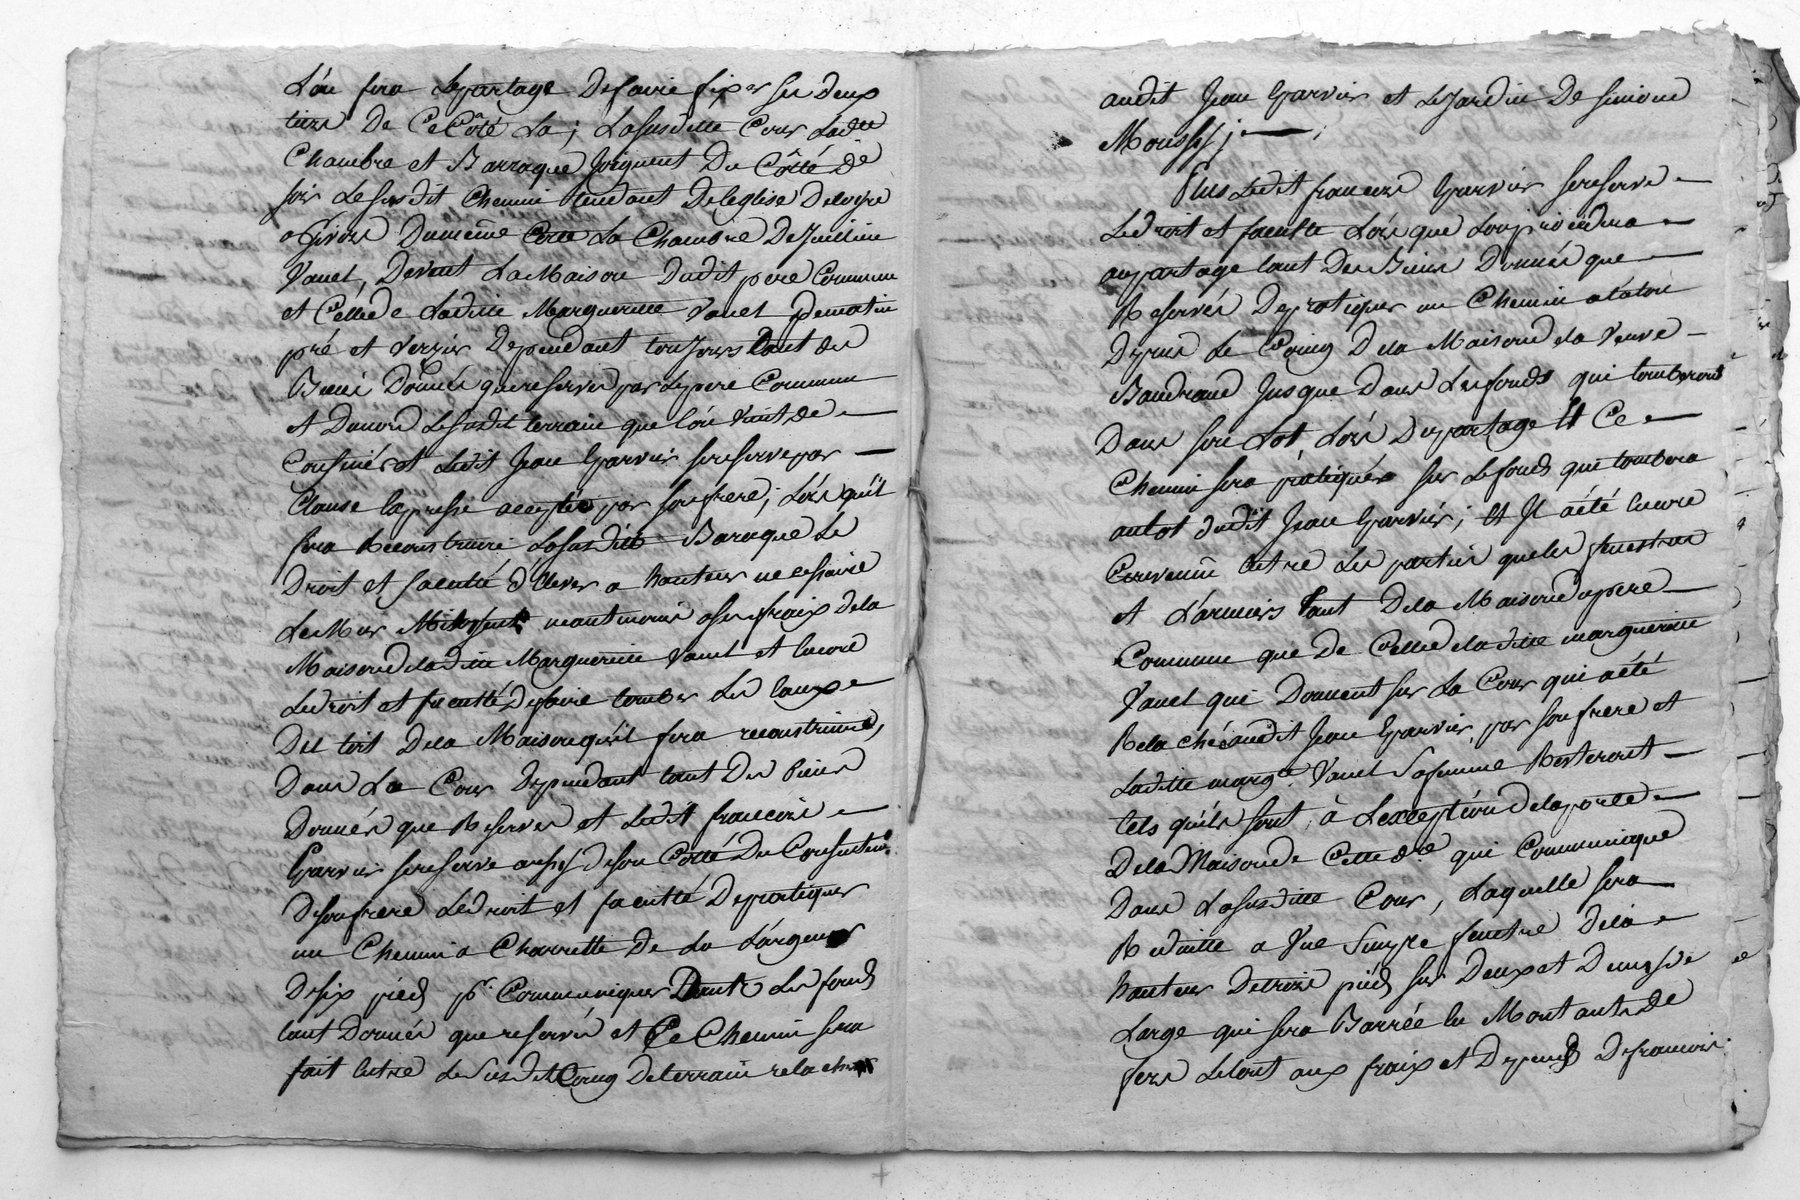 L'on fera Le partage De faire fixer ses deux
tiers De Ce Côté La ; La susditte Cour Laditte
Chambre et Barraque Joignent Du Côté de
soir Le susdit Chemin tendant De l'eglise De loyre
a Givors Du même Cotté La Chambre De Jullien
Vanel, Devant La Maison dudit pere Commun
et Celle de Laditte Margueritte Vanel De matin
pré et verger Dependant toujours tant des
Biens Donnés que reservés par Le pere Commun
et Dans Le susdit terrain que l'on vient de
Confiner et Ledit Jean Garvier se reserve par
Clause Expresse acceptée par son frere ; Lors qu'il
fera Reconstruire La susditte Baraque Le
Droit et faculté d'Elever a hauteur necessaire
Le Mur Mitoyent neantmoins a ses fraix de la
Maison de laditte Margueritte Vanel et Encore
Le droit et faculté de faire tomber Les Eaux
Du toit De la Maison qu'il fera reconstruire,
Dans La Cour Dependant tant Des Biens
Donnés que Reservés et Ledit francois
Garvier se reserve aussy de son Cotté Du Consentem.t
de son frere Le droit et faculté De pratiquer
un Chemin a Charrette De La Largeur
De six pieds p.r Communiquer Dans Les fonds
tant Donnés que reservés et Ce Chemin sera
fait Entre Le susdit Coing De terrain relaché
audit Jean Garvier et Le Jardin De Simone
Moussy ;
Plus Ledit francois Garvier se reserve
Le droit et faculté Lors que L'on procedera
au partage tant Des Biens Donnés que
Reservés De pratiquer un Chemin a talon
Depuis Le Coing De la Maison de la Veuve
Baudrand Jusque Dans Les fonds qui tomberont
Dans son Lot Lors Du partage Et Ce
Chemin sera pratiqués sur Le fonds qui tombera
au lot dudit Jean Garvier ; Et Il a été Encore
Convenû Entre Les parties que les fenestres
et Larmiers tant De la Maison du pere
Commun que de Celle de laditte margueritte
Vanel qui Donnent sur La Cour qui a été
Relachée audit Jean Garvier, par son frere et
Laditte marg.te Vanel Sa femme Resteront
tels qu'ils sont, à L'exception de la porte
De la Maison de Cette d.re qui Communique
Dans La susditte Cour, Laquelle sera
Reduitte a Une Simple fenetre de la
hauteur De trois pieds sur Deux et Demy de
Large qui sera Barrée en Montants de
fers Le tout aux fraix et Depends De francois